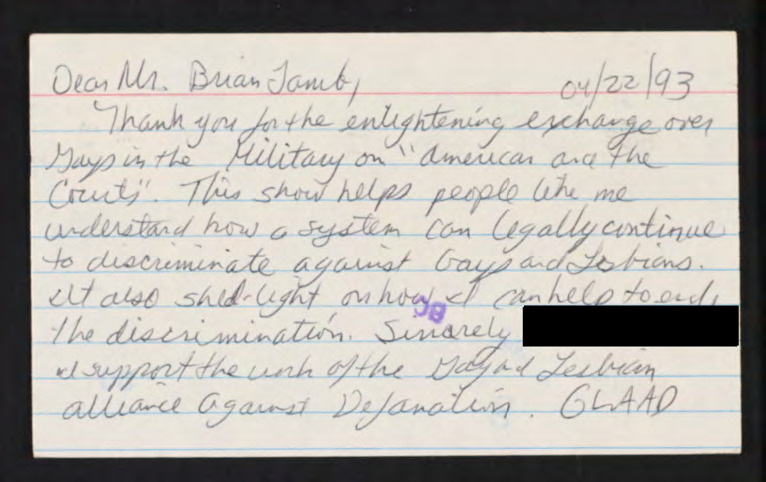 Dear Mr. Brian Lamb, 04/22/93
Thank you for the enlightening exchange over
Gays in the Military on "American and the
Courts". This show helps people like me
understand how a system can legally continue
to discriminate against Gays and Lesbians.
It also shed-light on how I can help to end
the discrimination. Sincerely
I support the work of the Gay and Lesbian
alliance Against Defamation. GLAAD